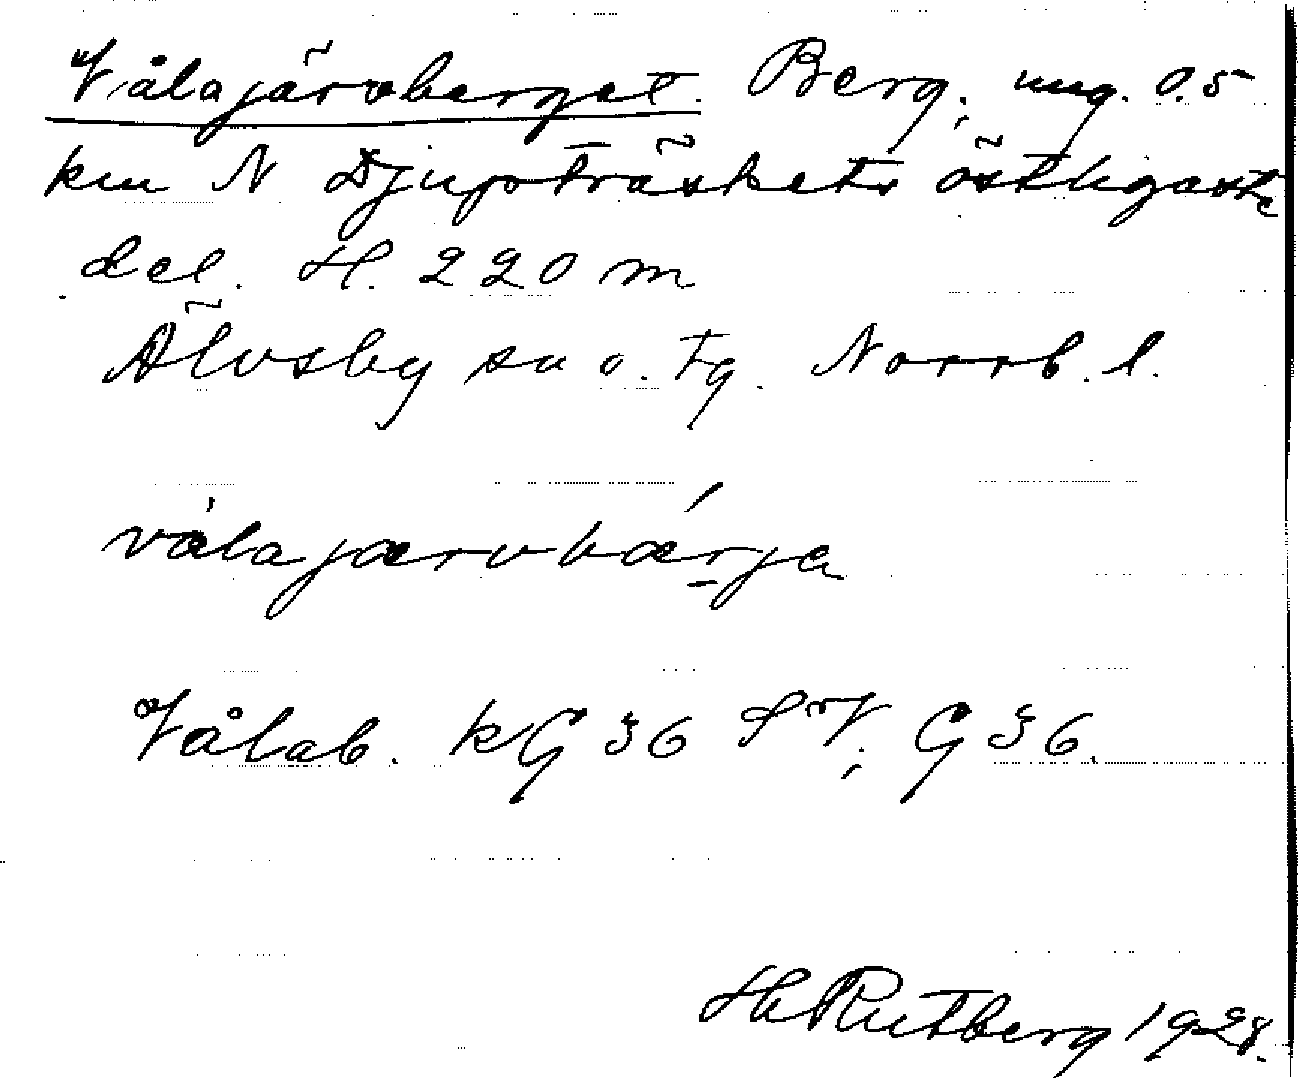 Vålajärvberget. Berg, ung. 0.5
km N Djupträskets östligaste
del. H. 220 m
Älvsby sn o. tg. Norrb. l.
vålajærvbærja
Vålab. kG 36 SV; G 36.
Hl Rutberg 1928.